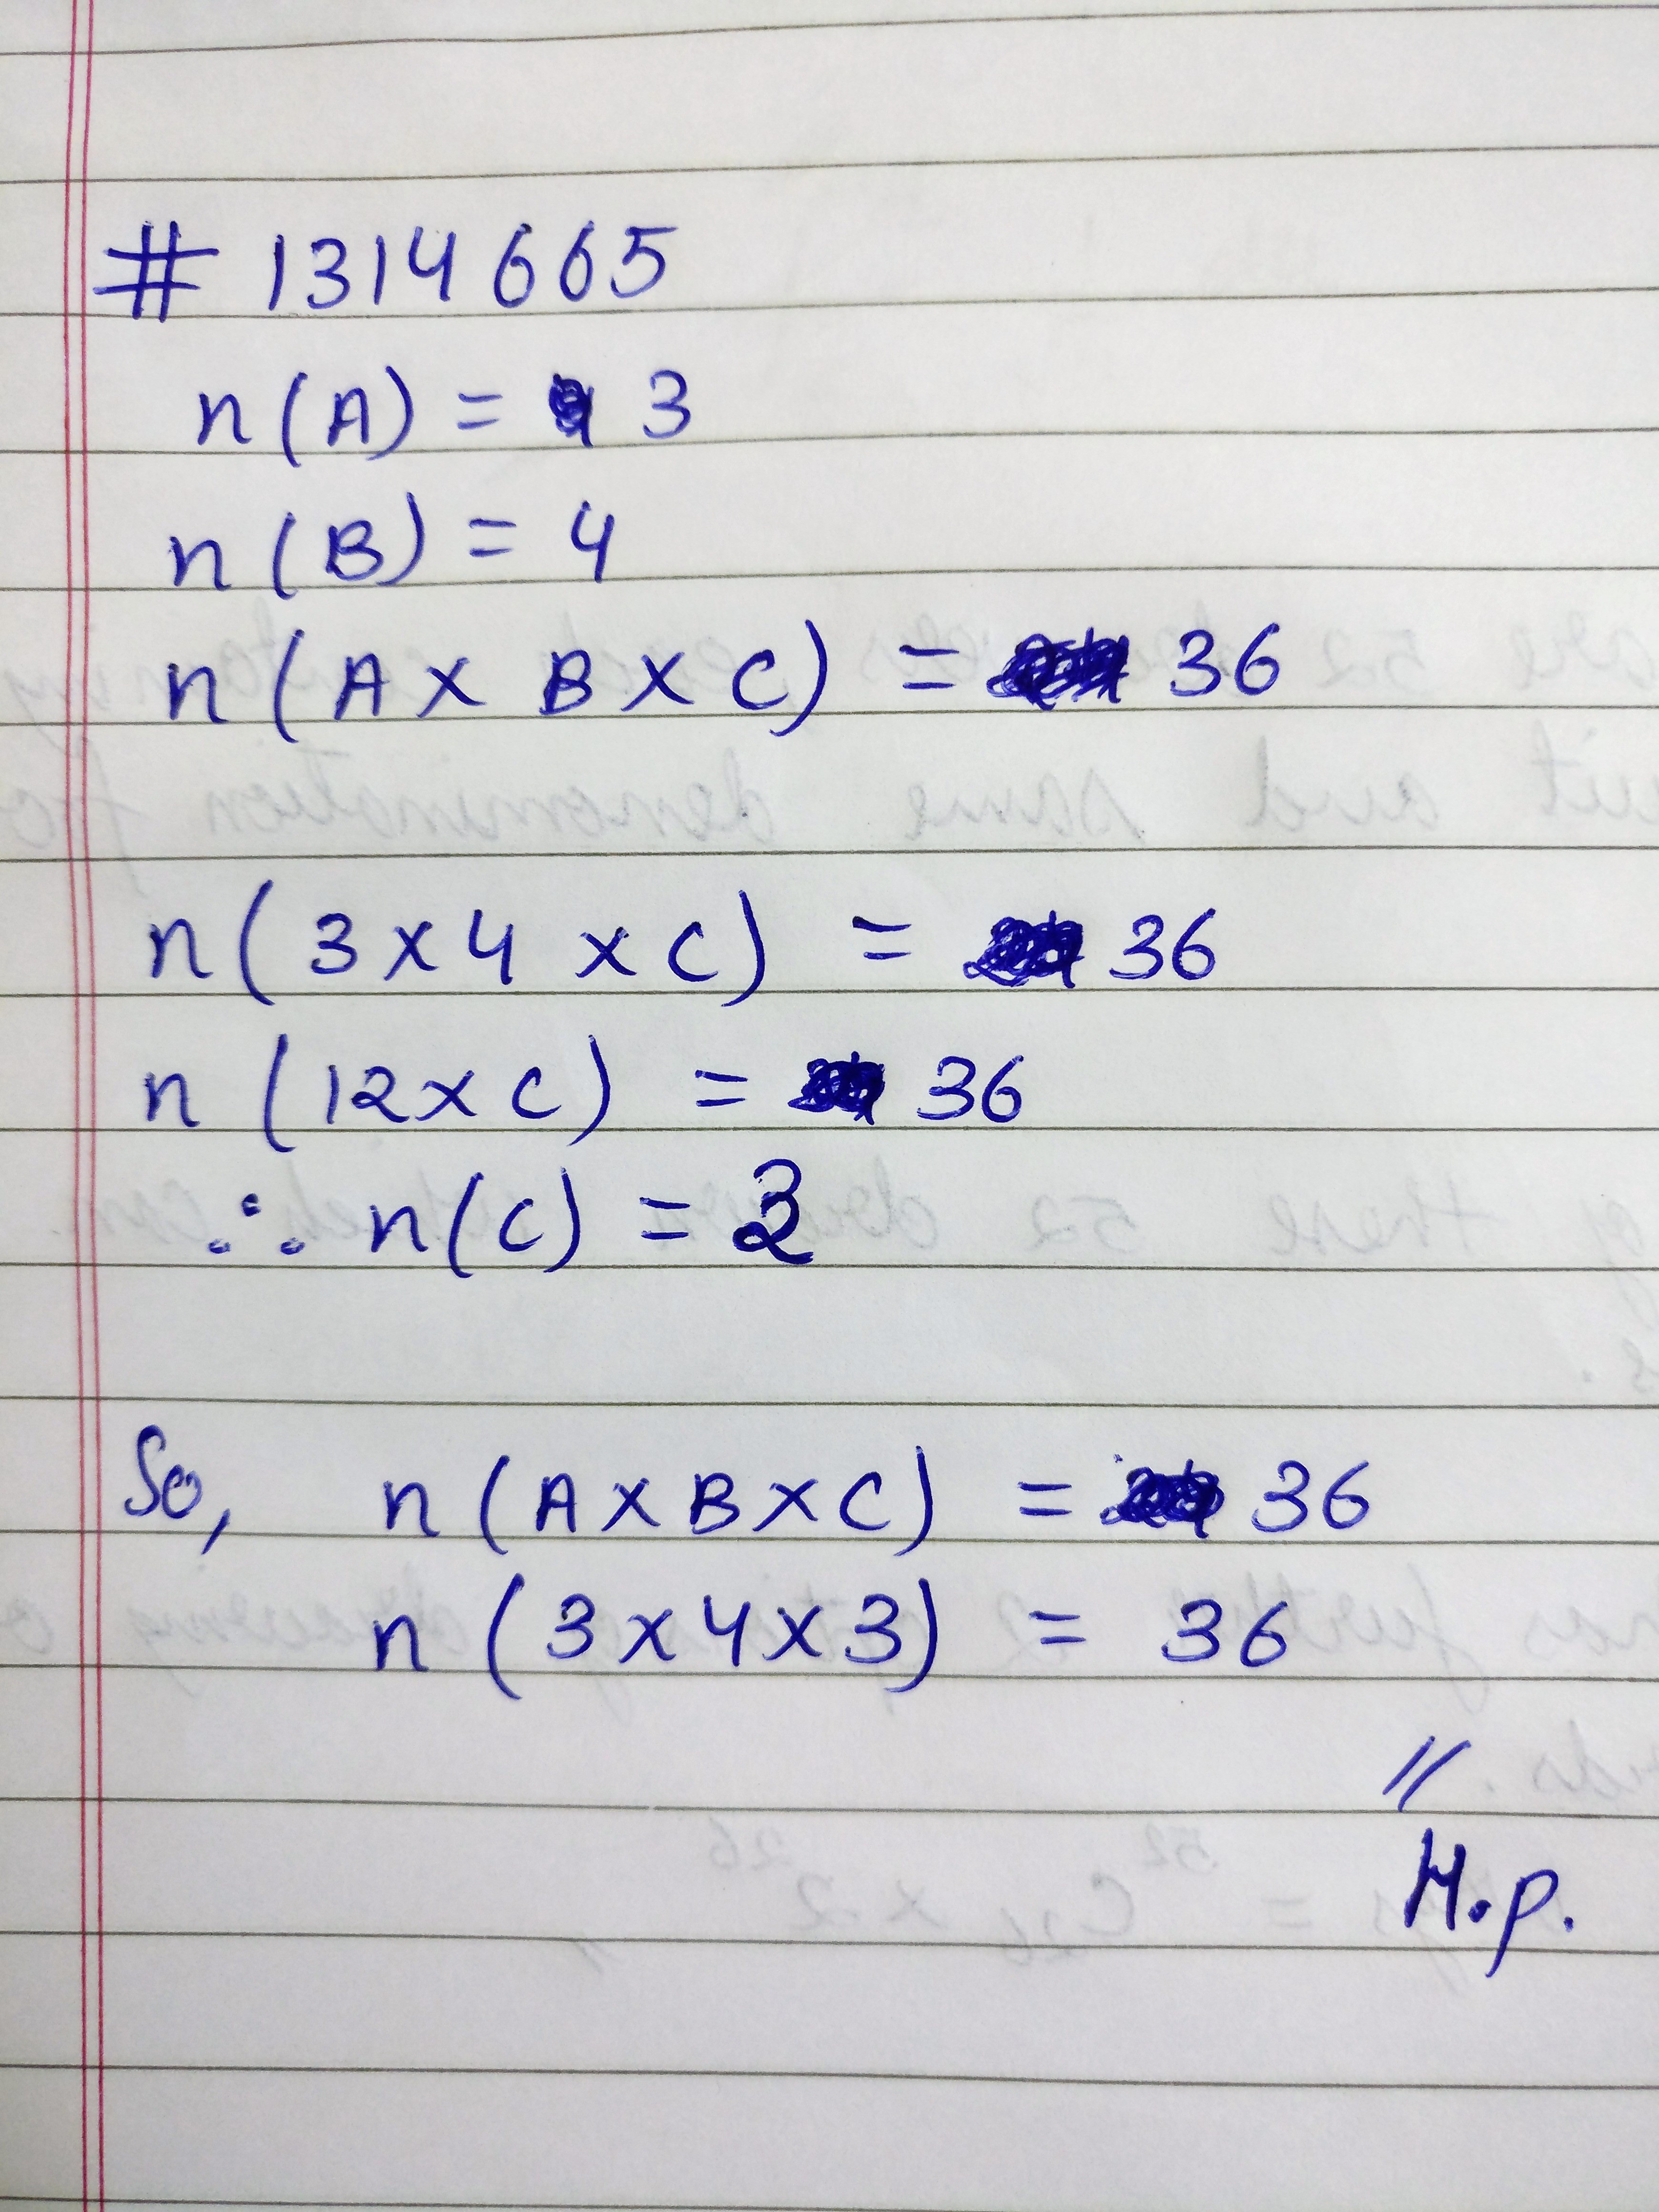 # 1314665
n(A) = 3
n(B) = 4
n(A × B × C) = 36
n(3 × 4 × C) = 36
n(12 × C) = 36
∴ n(C) = 3
So, n(A × B × C) = 36
n(3 × 4 × 3) = 36
//
H.p.